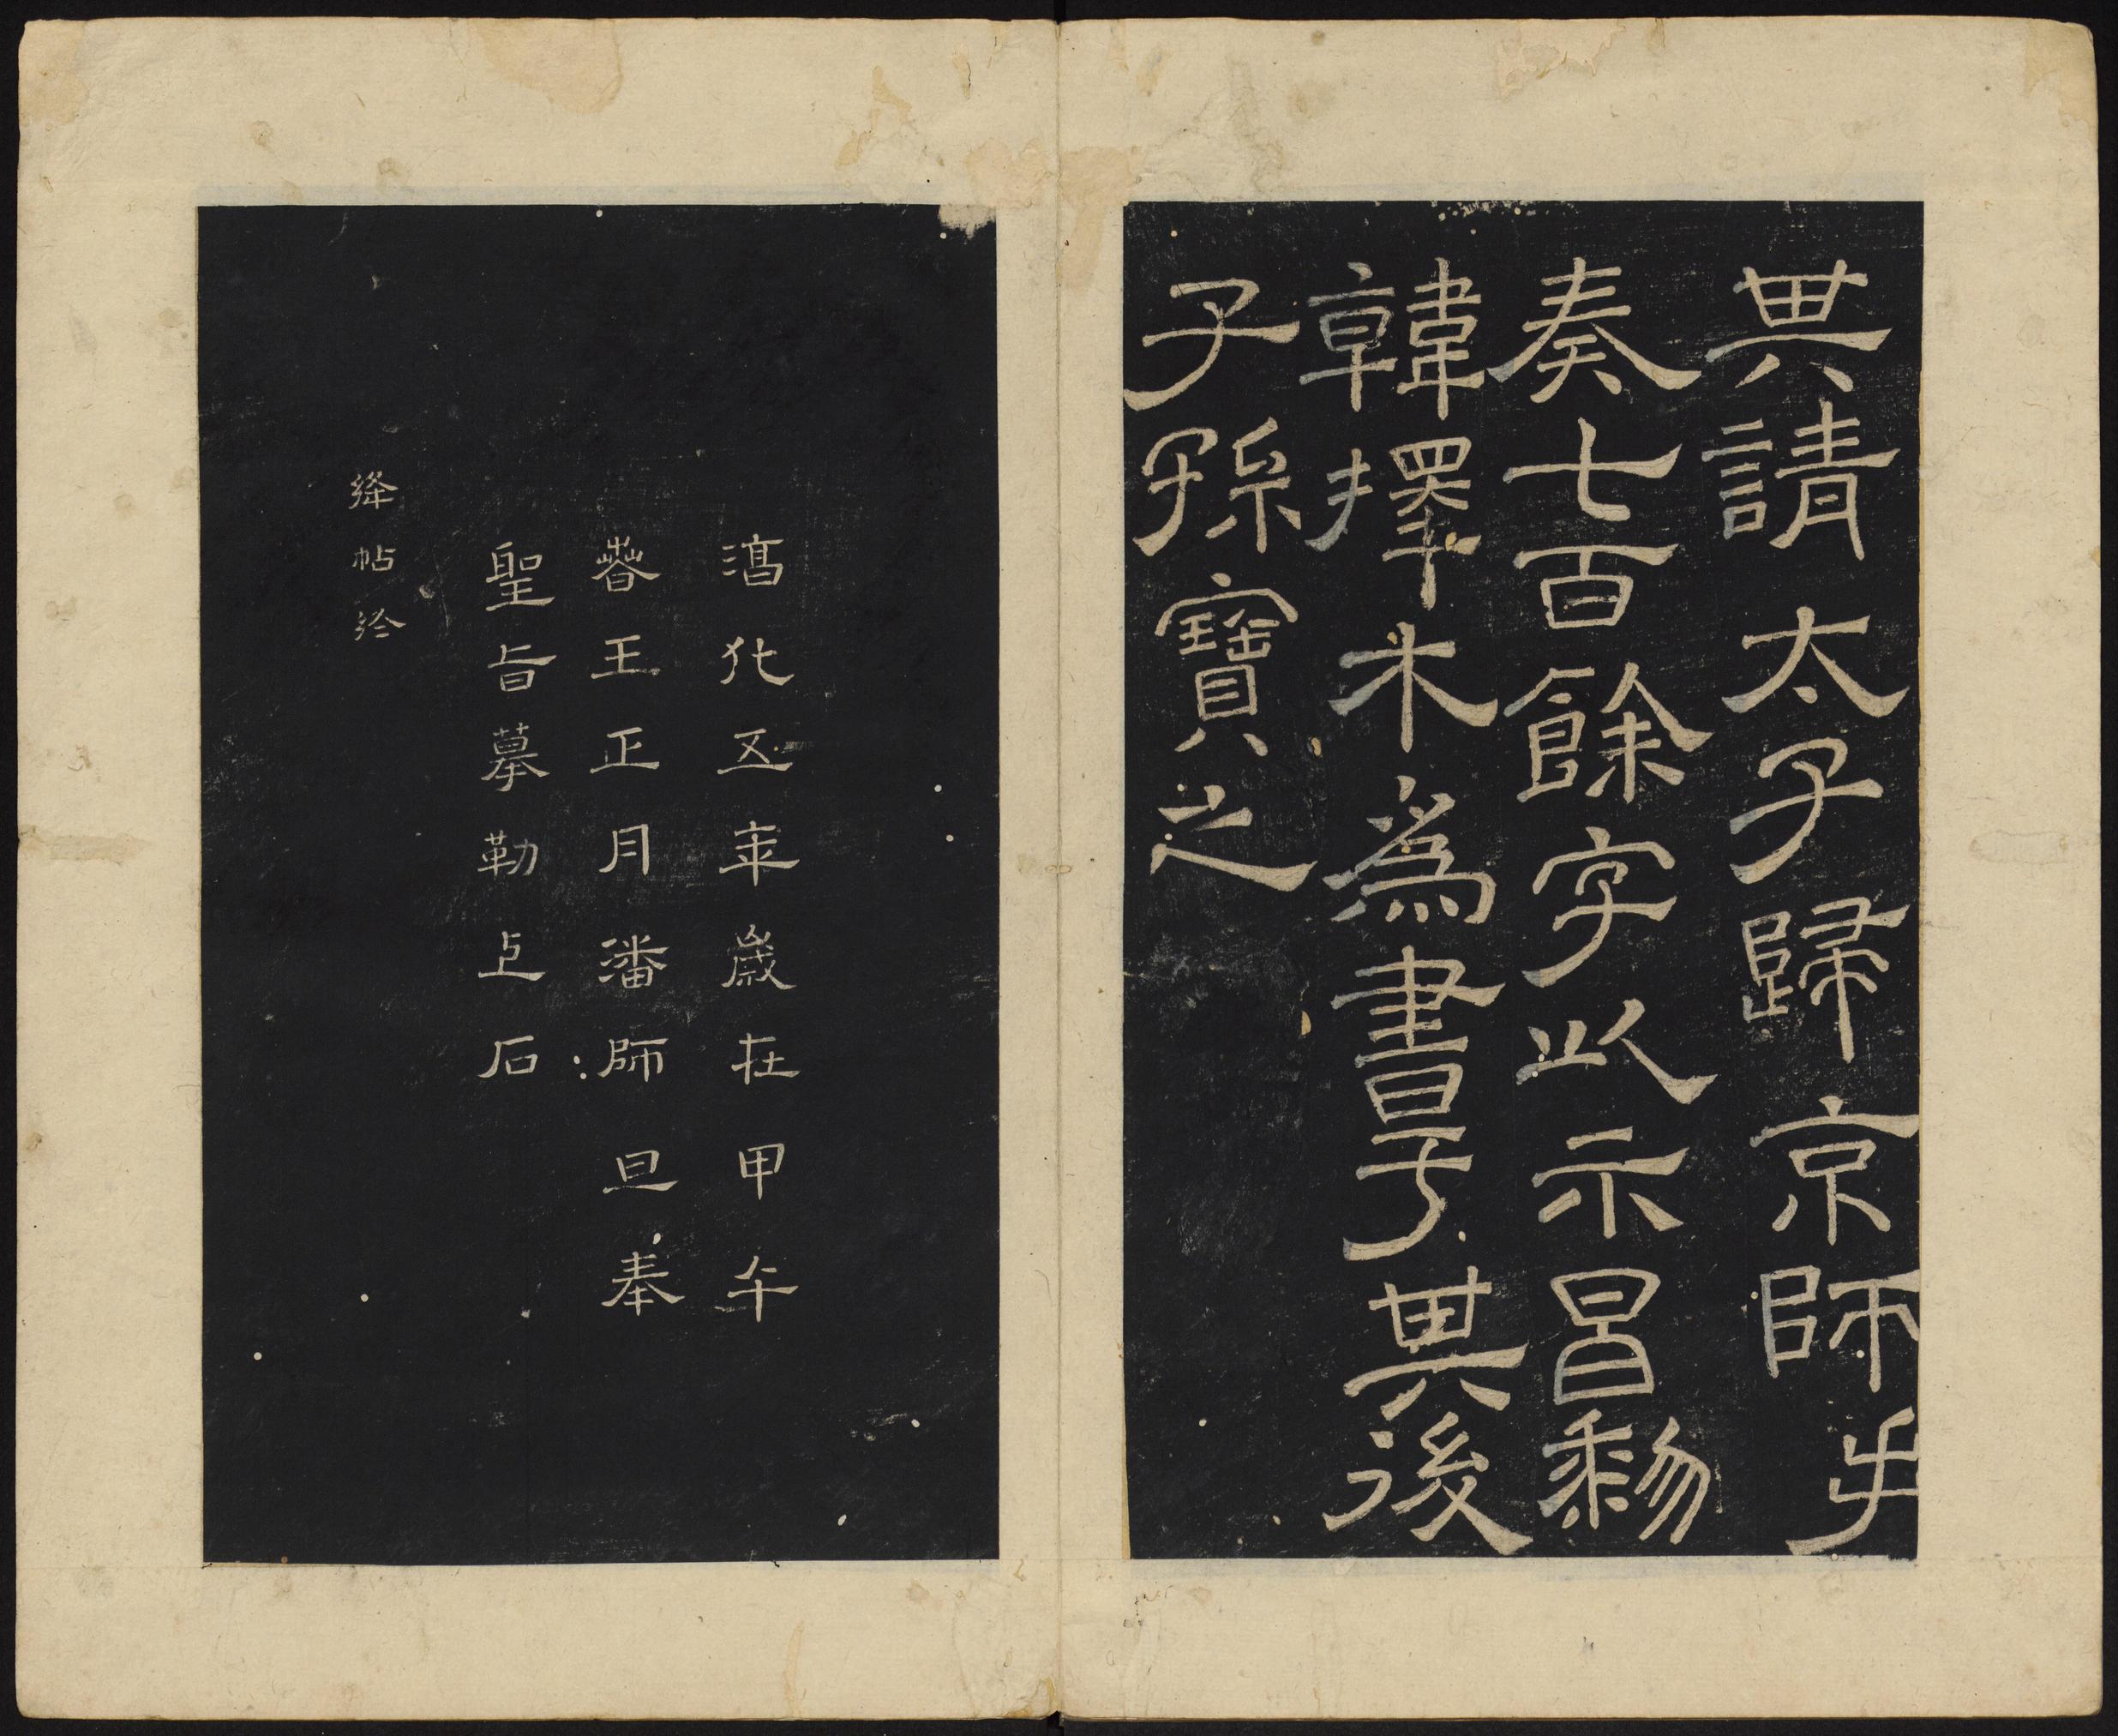 其請太子歸京師手
奏七百餘字以示昌黎
韓擇木為書于其後
子孫寶之
淳化五年歲在甲午
春王正月潘師旦奉
聖旨摹勒上石
絳帖終